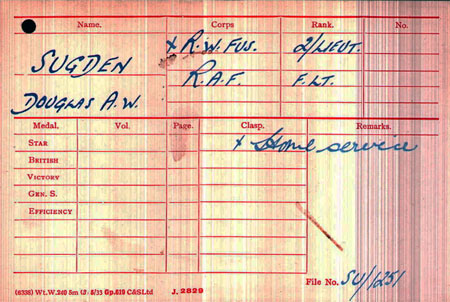 Name. Corps Rank. No.
x R.W. FUS. 2/LIEUT.
SUGDEN
R.A.F. F.LT.
DOUGLAS A.W.
Medal. Vol. Page. Clasp. Remarks.
STAR x Home service
BRITISH
VICTORY
GEN. S.
EFFICIENCY
(6336) Wt.W.240 5m 8/33 Gp.519 C&SLtd J. 2829
File No. SU/1251